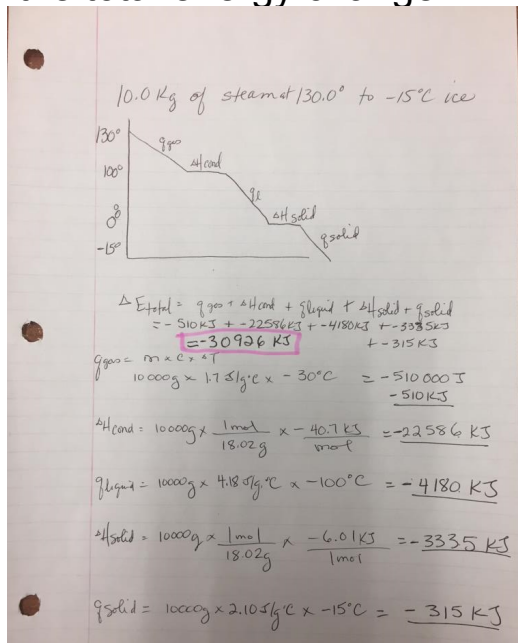 10.0 Kg of steam at 130.0° to -15°C ice
130°
qgas
100°
ΔHcond
ql
0°
ΔHsolid
qsolid
-15°
ΔEtotal = qgas + ΔHcond + qliquid + ΔHsolid + qsolid
= -510KJ + -22586KJ + -4180KJ + -3335KJ
+ -315KJ
= -30926 KJ
qgas = m x c x ΔT
10000g x 1.7 J/g°C x -30°C = -510 000 J
-510KJ
ΔHcond = 10000g x 1mol/18.02g x -40.7 KJ/mol = -22586 KJ
qliquid = 10000g x 4.18 J/g.°C x -100°C = -4180 KJ
ΔHsolid = 10000g x 1mol/18.02g x -6.01KJ/1mol = -3335 KJ
qsolid = 10000g x 2.10 J/g°C x -15°C = -315 KJ